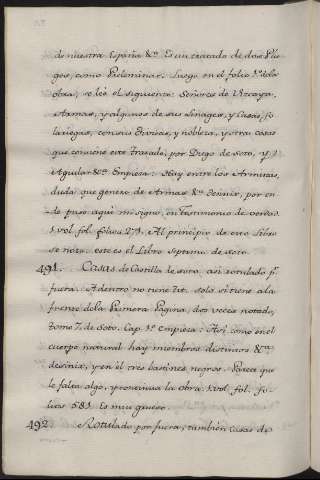 de nuestra España &ca. Es un tratado de dos Plie
gos, como Preliminar. Luego en el folio 1º de la
obra, se lee el siguiente: Señores de Vizcaya,
Armas, y algunos de sus Linages, y Casas, So
lariegas, con sus Divisas, y nobleza, y otras cosas
que convienen este Tratado, por Diego de Soto, y
Aguilar &ca. Empieza: Hay entre los Armistas,
duda que genero de Armas &ca. Desinit, por en
de puse aqui mi signo, en Testimonio de verdad.
1. vol. fol. folios 279. Al principio de este Libro
se nota: este es el Libro Septimo de Soto.
491. Casas de Castilla de Soto. asi rotulado pr.
fuera. Adentro no tiene tit. solo si tiene a la
frente de la Primera Pagina, dos veces notado,
tomo 7. de Soto. Cap. 1º Empieza: Asi como en el
cuerpo natural hay miembros distintos &ca.
desinit, y en él tres bastines negros. Parece que
le falta algo, y continua la obra. 1. vol. fol. fo-
lios 581. Es muy grueso.
492. Rotulado por fuera, tambien casas de